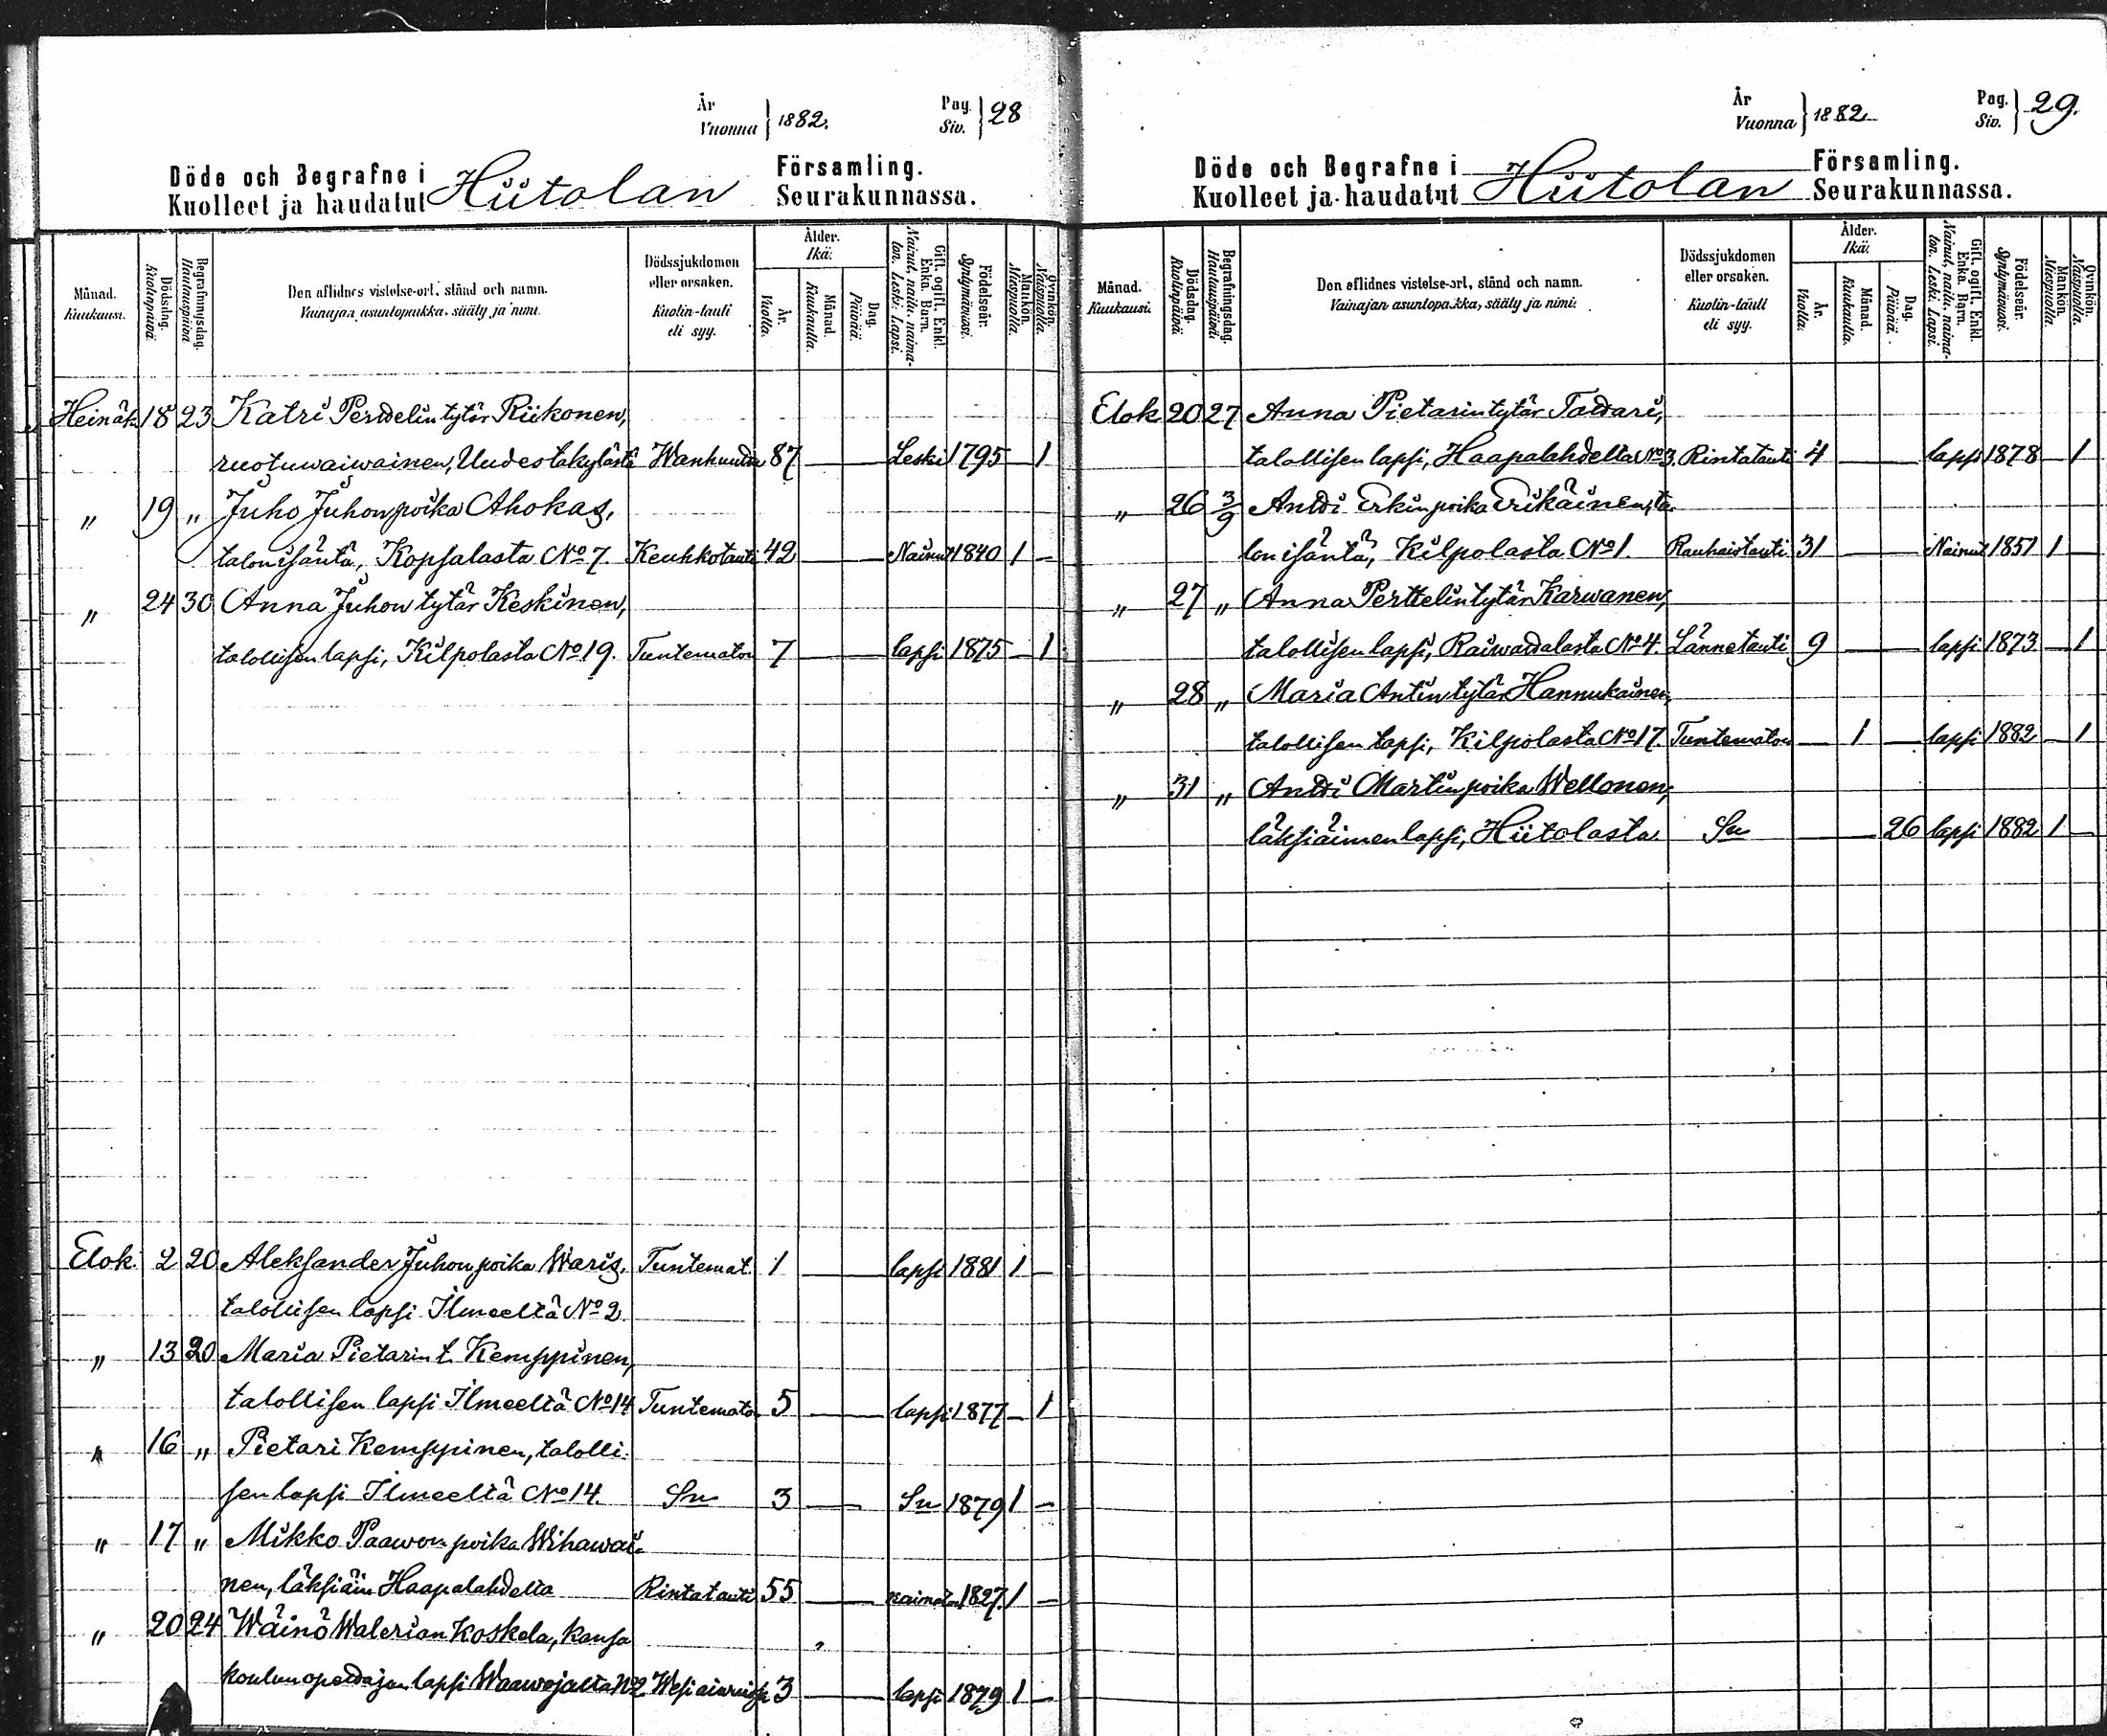 År
Vuonna } 1882.
Pag.
Siv. } 28
Döde och Begrafne i
Kuolleet ja haudatut Hiitolan
Församling.
Seurakunnassa.
Månad. Kuukausi.
Dödsdag. Kuolinpäivä
Begrafningsdag. Hautauspäivä
Den aflidnes vistelse-ort, stånd och namn.
Vainajan asuntopaikka, sääty ja nimi.
Dödssjukdomen eller orsaken.
Kuolin-tauti eli syy.
Ålder. Ikä.
År. Vuotta.
Månad. Kuukautta.
Dag. Päivää.
Gift, ogift, Enkl. Enka. Barn.
Nainut, naitu, naimaton. Leski. Lapsi.
Födelseår. Syntymävuosi.
Mankön. Miespuolia.
Qvinkön. Naispuolia.
Heinäk. 18 23 Katri Perttelin tytär Riikonen,
ruotuwaiwainen, Uudestakylästä Wanhuutta 87 — Leski 1795 — 1
" 19 " Juho Juhonpoika Ahokas,
talonisäntä, Kopsalasta No 7. Keuhkotauti 42 — Nainut 1840 1 —
" 24 30 Anna Juhon tytär Keskinen,
talollisen lapsi, Kilpolasta No 19. Tuntematon 7 — lapsi 1875 — 1
Elok. 2 20 Aleksander Juhon poika Waris. Tuntemat. 1 — lapsi 1881 1 —
talollisen lapsi Ilmeeltä No 2
" 13 20 Maria Pietarin t. Kemppinen,
talollisen lapsi Ilmeeltä No 14 Tuntematon 5 — lapsi 1877 — 1
" 16 " Pietari Kemppinen, talolli-
sen lapsi Ilmeeltä No 14. Sn 3 — Sn 1879 1 —
" 17 " Mikko Paawon poika Wihawai-
nen, läksiäin Haapalahdelta Rintatauti 55 — naimaton 1827. 1 —
" 20 24 Wäinö Walerian Koskela, kansa
koulunopettajan lapsi Waawojalta No 2 3 — lapsi 1879 1 —
År
Vuonna } 1882
Pag.
Siv. } 29.
Döde och Begrafne i
Kuolleet ja haudatut Hiitolan
Församling.
Seurakunnassa.
Månad. Kuukausi.
Dödsdag. Kuolinpäivä
Begrafningsdag. Hautauspäivä
Den aflidnes vistelse-ort, stånd och namn.
Vainajan asuntopaikka, sääty ja nimi.
Dödssjukdomen eller orsaken.
Kuolin-tauti eli syy.
Ålder. Ikä.
År. Vuotta.
Månad. Kuukautta.
Dag. Päivää.
Gift, ogift, Enkl. Enka. Barn.
Nainut, naitu, naimaton. Leski. Lapsi.
Födelseår. Syntymävuosi.
Mankön. Miespuolia.
Qvinkön. Naispuolia.
Elok 20 27 Anna Pietarin tytär Tattari,
talollisen lapsi, Haapalahdelta No 3. Rintatauti 4 — lapsi 1878 — 1
" 26 3/9 Antti Erkin poika Erikäinen, ta-
lon isäntä, Kilpolasta No 1. Rauhaistauti 31 — Nainut 1851 1 —
" 27 " Anna Perttelin tytär Karwanen,
talollisen lapsi, Raiwattalasta No 4. Lännetauti 9 — lapsi 1873 — 1
" 28 " Maria Antin tytär Hannukainen,
talollisen lapsi, Kilpolasta No 17. Tuntematon — 1 — lapsi 1882 — 1
" 31 " Antti Martin poika Wellonen,
läksiäimen lapsi, Hiitolasta. Sn — 26 lapsi 1882 1 —